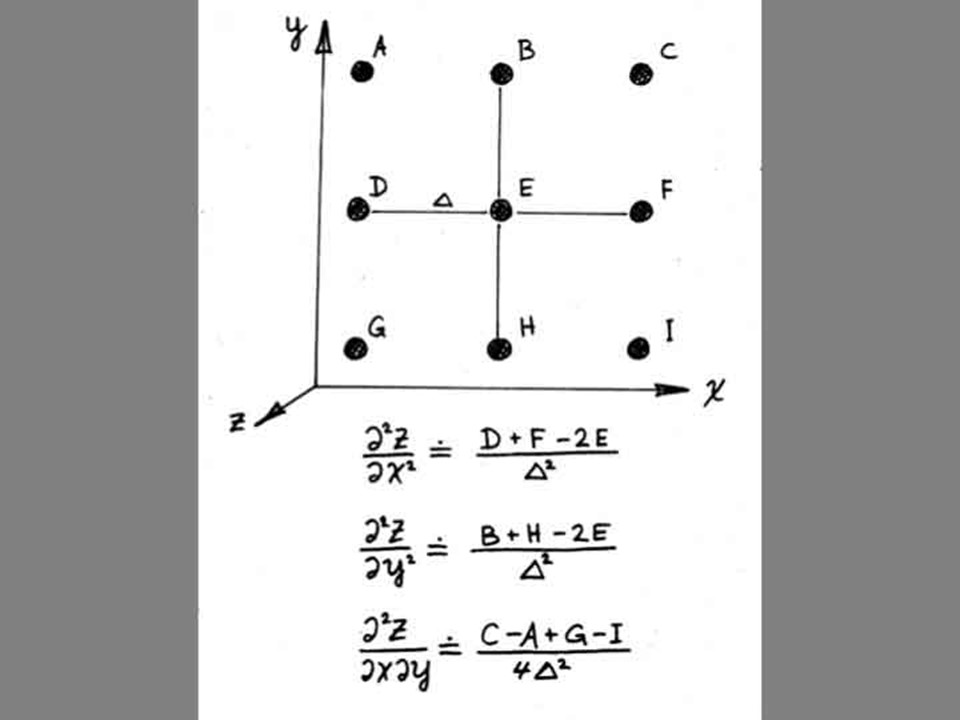 y
A B C
D Δ E F
G H I
x
z
∂²Z/∂x² ≐ (D + F - 2E)/Δ²
∂²Z/∂y² ≐ (B + H - 2E)/Δ²
∂²Z/∂x∂y ≐ (C - A + G - I)/4Δ²